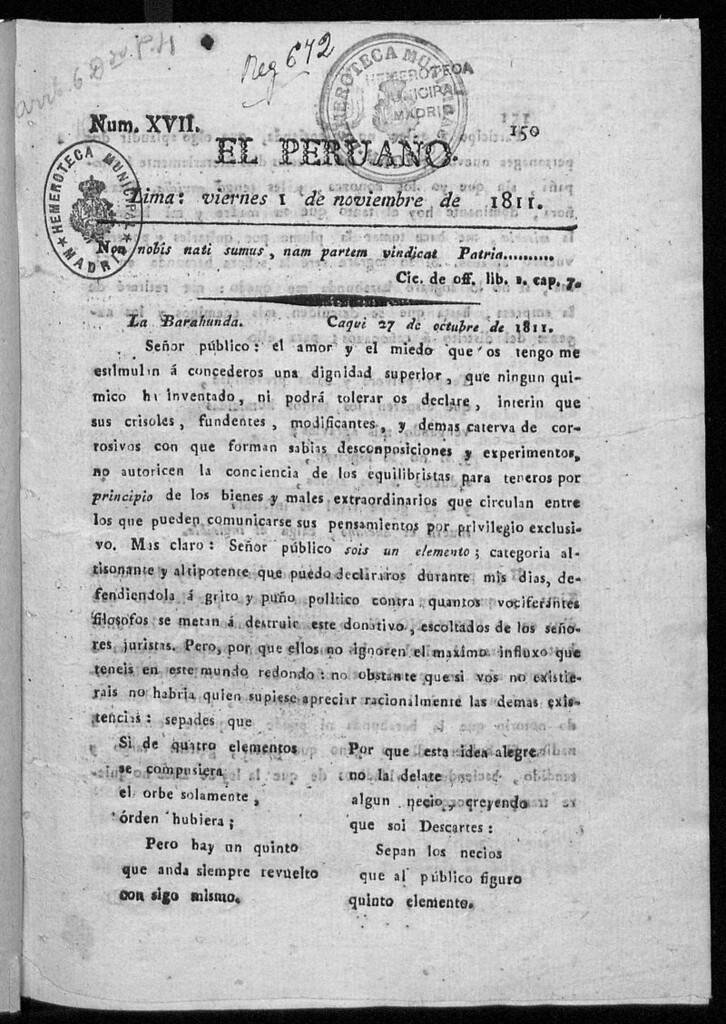 Reg 672
HEMEROTECA MUNICIPAL
HEMEROTECA
MUNICIPAL
MADRID
Num. XVII.
150
EL PERUANO.
HEMEROTECA MUNICIPAL
MADRID
Lima: viernes 1 de noviembre de 1811.
Non nobis nati sumus, nam partem vindicat Patria..........
Cic. de off. lib. 1. cap. 7.
La Barahunda. Caqui 27 de octubre de 1811.
Señor público: el amor y el miedo que os tengo me
estimulan á concederos una dignidad superior, que ningun qui-
mico ha inventado, ni podrá tolerar os declare, interin que
sus crisoles, fundentes, modificantes, y demas caterva de cor-
rosivos con que forman sabias desconposiciones y experimentos,
no autoricen la conciencia de los equilibristas para teneros por
principio de los bienes y males extraordinarios que circulan entre
los que pueden comunicarse sus pensamientos por privilegio exclusi-
vo. Mas claro: Señor público sois un elemento; categoria al-
tisonante y altipotente que puedo declararos durante mis dias, de-
fendiendola á grito y puño politico contra quantos vociferantes
filosofos se metan á destruir este donativo, escoltados de los seño-
res juristas. Pero, por que ellos no ignoren el maximo influxo que
teneis en este mundo redondo: no obstante que si vos no existie-
rais no habria quien supiese apreciar racionalmente las demas exis-
tencias: sepades que
Si de quatro elementos
se compusiera
el orbe solamente,
órden hubiera;
Pero hay un quinto
que anda siempre revuelto
con sigo mismo.
Por que esta idea alegre
no la delate
algun necio, creyendo
que soi Descartes:
Sepan los necios
que al público figuro
quinto elemento.